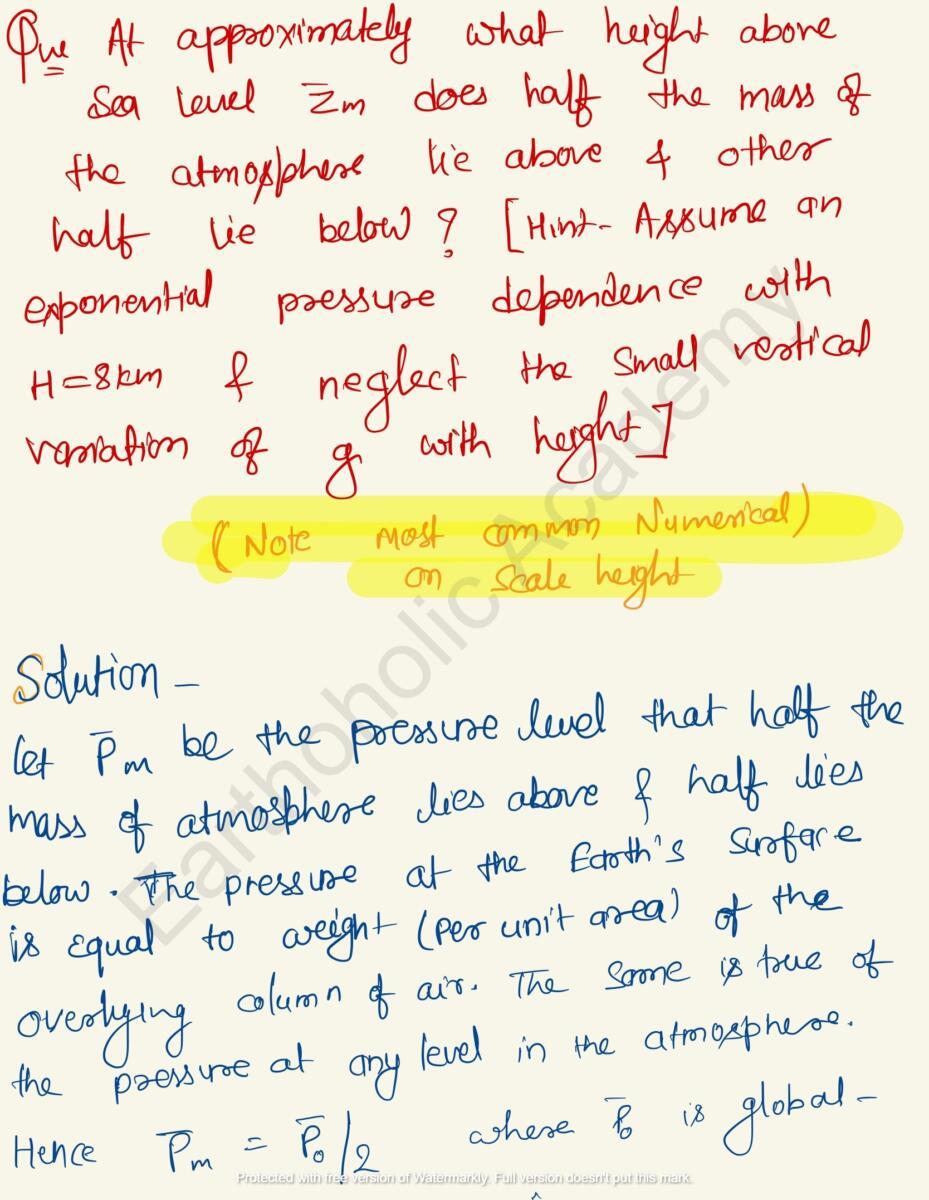 Que At approximately what height above
Sea level Z̄m does half the mass of
the atmosphere lie above & other
half lie below? [Hint- Assume an
exponential pressure dependence with
H=8km & neglect the small vertical
variation of g with height]
(Note most common Numerical)
on Scale height
Solution -
let P̄m be the pressure level that half the
mass of atmosphere lies above & half lies
below. The pressure at the Earth's Surface
is equal to weight (per unit area) of the
overlying column of air. The same is true of
the pressure at any level in the atmosphere.
Hence P̄m = P̄o/2 where P̄o is global-
Earthoholic Academy
Protected with free version of Watermarkly. Full version doesn't put this mark.